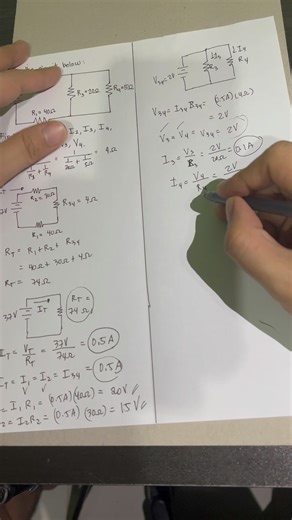 below:
R₃=20Ω
R₄=5Ω
R₁=40Ω
I₂, I₃, I₄,
V₃, V₄.
= 1/(1/20 + 1/5) = 4Ω
R₂=30Ω
R₃₄ = 4Ω
R₁=40Ω
R_T = R₁ + R₂ + R₃₄
= 40Ω + 30Ω + 4Ω
R_T = 74Ω
37V
I_T
R_T = 74Ω
I_T = V_T/R_T = 37V/74Ω = 0.5A
I_T = I₁ = I₂ = I₃₄ = 0.5A
= I₁ R₁ = (0.5A)(40Ω) = 20V
= I₂R₂ = (0.5A)(30Ω) = 15V
V₃₄=2V
I₃
R₃
I₄
R₄
V₃₄ = I₃₄ R₃₄ = (0.5A)(4Ω)
= 2V
V₃ = V₄ = V₃₄ = 2V
I₃ = V₃/R₃ = 2V/20Ω = 0.1A
I₄ = V₄/R₄ = 2V